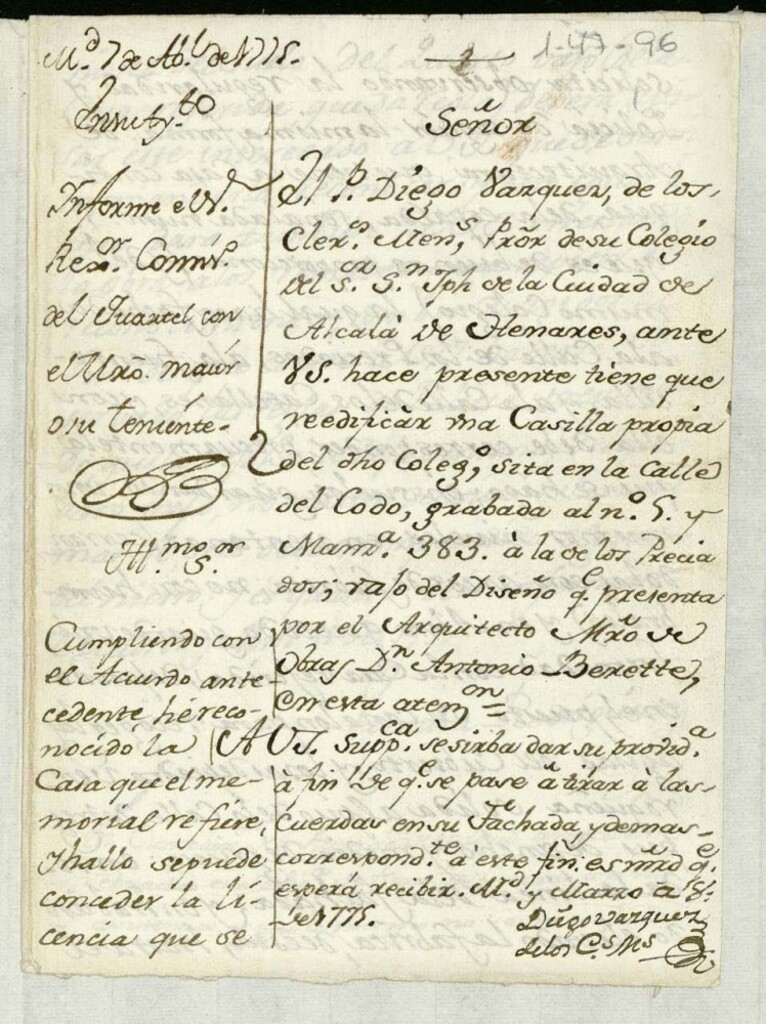 M.d 7 de Ab.l de 1775.
1-47-96
En su Ay.to
Informe el S.r
Rex.or Comiss.o
del Quartel con
el Mro. maior
o su teniente-
Ill.mo S.or
Cumpliendo con
el Acuerdo ante-
cedente hé reco-
nocidó la
Casa que el me-
morial refiere,
Y hallo se puede
conceder la li-
cencia que se
Señor
El P. Diego Vazquez, de los
Cler.s Men.s, Prōr de su Colegio
del S.or S.n Jph de la Ciudad de
Alcalà de Henares, ante
VS. hace presente tiene que
reedificar vna Casilla propia
del dho Coleg.o, sita en la Calle
del Codo, grabada al n.o 5. y
Manz.a 383. à la de los Precia
dos; vajo del Diseño q.e presenta
por el Arquitecto Mrō de
Obras D.n Antonio Berette,
en esta aten.on =
A VS. supp.ca se sirba dar su provid.a
à fin de q.e se pase à tirar à las
Cuerdas en su Fachada, y demas
correspond.te à este fin. es mrd q.e
espera recibir. M.d y Marzo
de 1775.
Diego Vazquez
de los C.s M.s